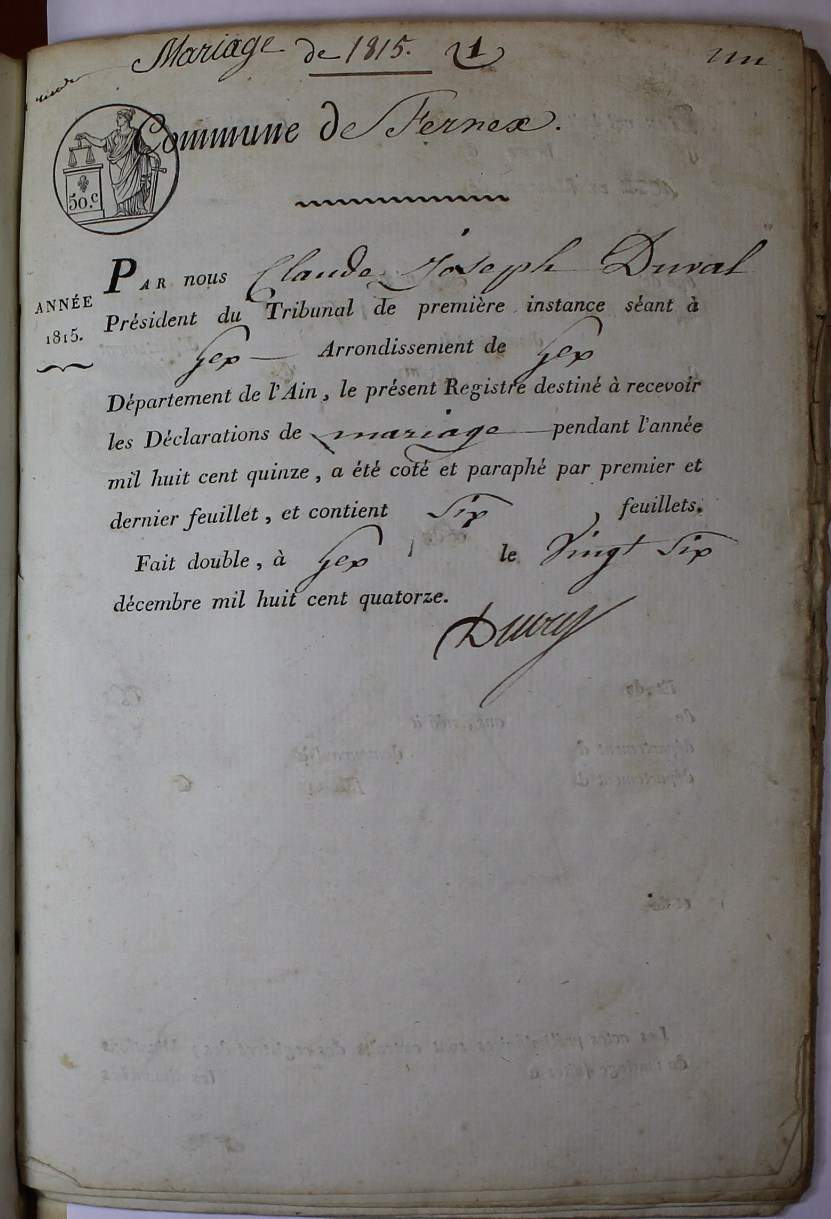 Mariage de 1815. 1
Commune de Fernex.
50.c
ANNÉE
1815.
PAR nous Claude Joseph Duval
Président du Tribunal de première instance séant à
Gex Arrondissement de Gex
Département de l'Ain, le présent Registre destiné à recevoir
les Déclarations de mariage pendant l'année
mil huit cent quinze, a été coté et paraphé par premier et
dernier feuillet, et contient Six feuillets.
Fait double, à Gex le Vingt Six
décembre mil huit cent quatorze.